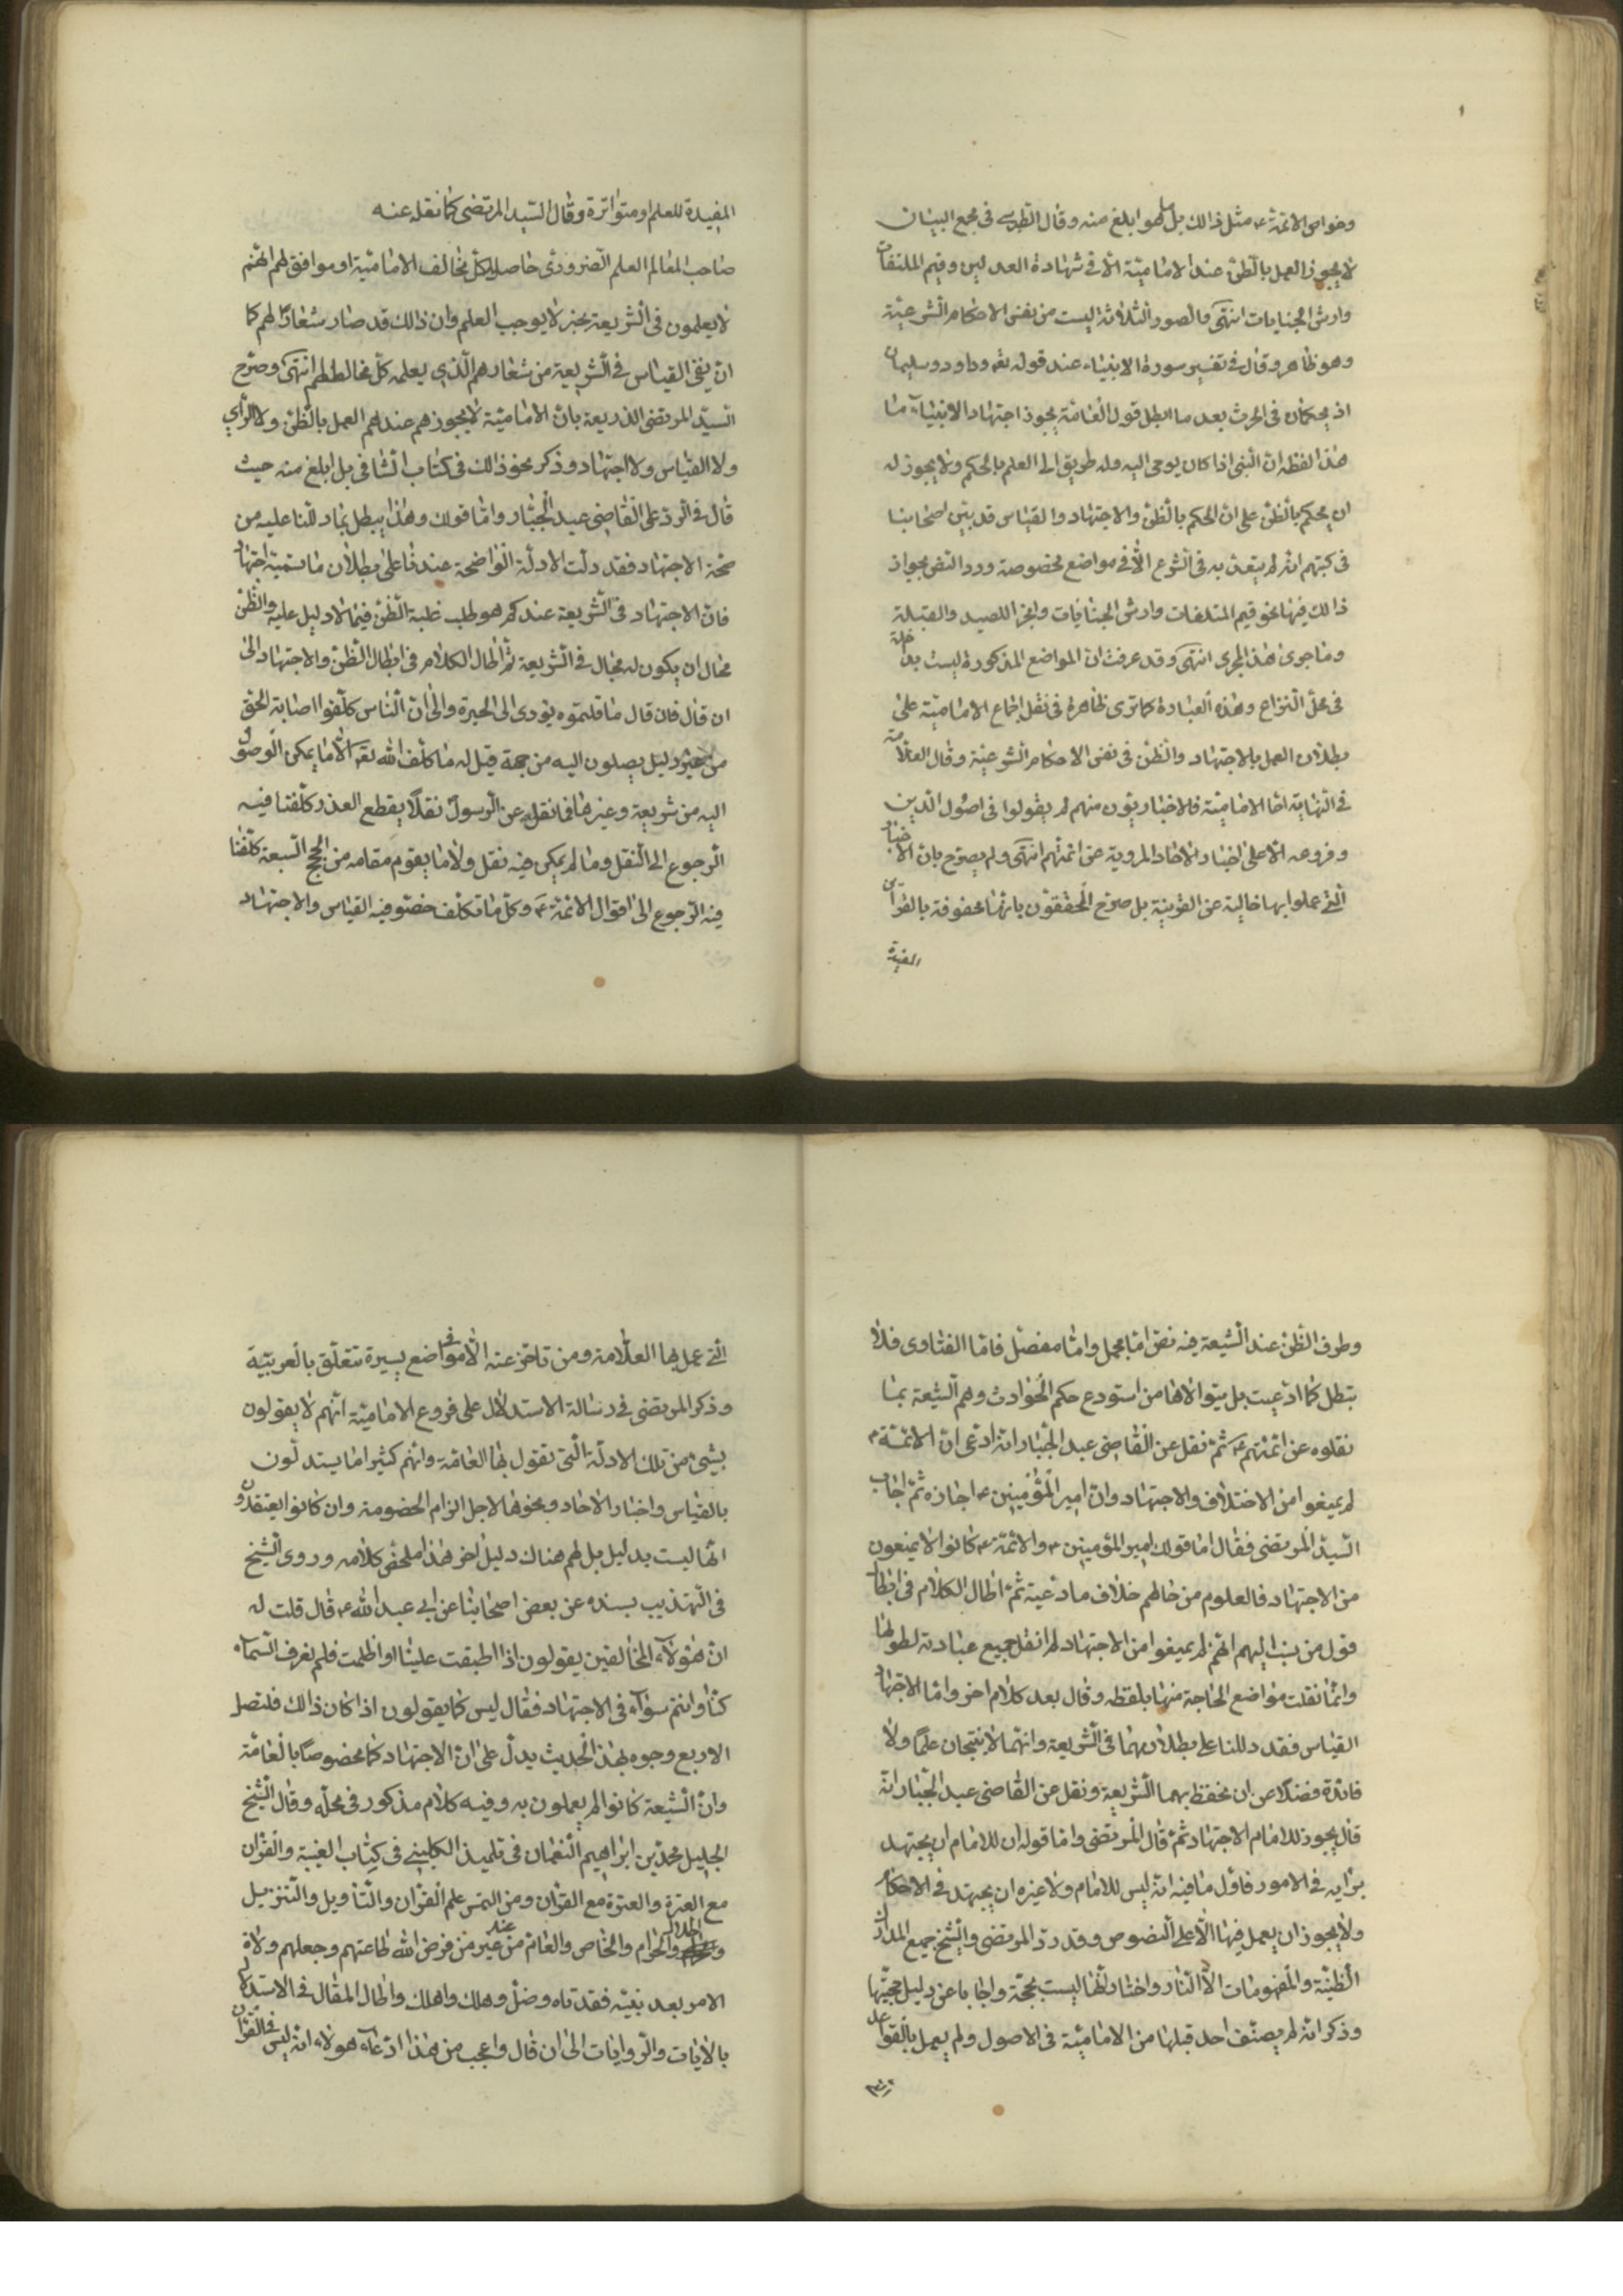 ١
وخواص الائمة ع مثل ذالك بل ما هو ابلغ منه وقال الطبرسى فى مجمع البيان
لا يجوز العمل بالظن عند الامامية الا فى شهادة العدلين وقيم المتلفات
وارش الجنايات انتهى والصور الثلاثة ليست من نفس الاحكام الشرعية
وهو ظاهر وقال فى تفسير سورة الانبياء عند قوله تعه وداود وسليمان
اذ يحكمان فى الحرث بعد ما ابطل قول العامة بجوز اجتهاد الانبياء ما
هذا لفظه ان النبى اذا كان يوحى اليه وله طريق الى العلم بالحكم ولا يجوز له
ان يحكم بالظن على ان الحكم بالظن والاجتهاد والقياس قد بين اصحابنا
فى كتبهم انه لم يتعبد به فى الشرع الا فى مواضع مخصوصة ورد النص بجواز
ذالك فيها نحو قيم المتلفات وارش الجنايات وجزا الصيد والقبلة
وما جرى هذا المجرى انتهى وقد عرفت ان المواضع المذكورة ليست بداخلة
فى محل النزاع وهذه العبادة كما ترى ظاهرة فى نقل اجماع الامامية على
بطلان العمل بالاجتهاد والظن فى نفس الاحكام الشرعية وقال العلامة
فى النهاية اما الامامية فالاخباريون منهم لم يقولوا فى اصول الدين
وفروعه الا على اخبار الاحاد المروية عن ائمتهم انتهى ولم يصرح بان الاخبار
التى عملوا بها خالية عن القرينة بل صرح المحققون بانها محفوفة بالقرآئن
المفيدة
المفيدة للعلم او متواترة وقال السيد المرتضى كما نقله عنه
صاحب المعالم العلم الضرورى حاصل لكل مخالف الامامية او موافق لهم انهم
لا يعلمون فى الشريعة بخبر لا يوجب العلم وان ذالك قد صار شعارا لهم كما
ان نفى القياس فى الشريعة من شعارهم الذى يعلمه كل مخالط لهم انتهى وصرح
السيد المرتضى الذريعة بان الامامية لا يجوز هم عندهم العمل بالظن ولا الرأى
ولا القياس ولا اجتهاد وذكر نحو ذالك فى كتاب الشافى بل ابلغ منه حيث
قال فى الرد على القاضى عبد الجبار واما قولك وهذا يبطل بما دللنا عليه من
صحة الاجتهاد فقد دلت الادلة الواضحة عندنا على بطلان ما تسميه اجتهاد
فان الاجتهاد فى الشريعة عندكم هو طلب غلبة الظن فيما لا دليل عليه والظن
محال ان يكون له مجال فى الشريعة ثم اطال الكلام فى ابطال الظن والاجتهاد الى
ان قال فان قال ما قلتموه يؤدى الى الحيرة والى ان الناس كلفوا اصابة الحق
من غير دليل يصلون اليه من جهة قيل له ما كلف الله تعه الا ما يمكن الوصول
اليه من شريعة وغيرها فما نقل عن الرسول نقلا يقطع العذر كلفنا فيه
الرجوع الى النقل وما لم يمكن فيه نقل ولا ما يقوم مقامه من الحجج السبعة كلفنا
فيه الرجوع الى اقوال الائمة ع وكل ما تكلف خصو فيه القياس والاجتهاد
وطرف الظن عند الشيعة فيه نص اما مجمل واما مفصل فاما الفتاوى فلا
تبطل كما ادعيت بل يتوالاها من استودع حكم الحوادث وهم الشيعة بما
نقلوه عن ائمتهم ع ثم نقل عن القاضى عبد الجبار انه ادعى ان الائمة ع
لم يمنعوا من الاختلاف والاجتهاد وان امير المؤمنين ع اجازه ثم اجاب
السيد المرتضى فقال اما قولك امير المؤمنين ع والائمة ع كانوا لا يمنعون
من الاجتهاد فالعلوم من حالهم خلاف ما دعيته ثم اطال الكلام فى ابطال
قول من نسب اليهم انهم لم يمنعوا من الاجتهاد لم انقل جميع عبادته لطولها
وانما نقلت مواضع الحاجة منها بلفظه وقال بعد كلام اخر واما الاجتهاد
القياس فقد دللنا على بطلانهما فى الشريعة وانهما لا ينتجان علما ولا
فائدة فضلا عن ان نحفظ بهما الشريعة ونقل عن القاضى عبد الجبار انه
قال يجوز للامام الاجتهاد ثم قال المرتضى واما قوله ان للامام ان يجتهد
برايه فى الامور فاول ما فيه انه ليس للامام ولا غيره ان يجتهد فى الاحكام
ولا يجوز ان يعمل فيها الا على النصوص وقد رد المرتضى والشيخ جميع المدارك
الظنية والمفهومات الا النار واختار انها ليست بحجة واجابا عن دليل حجيتها
وذكر انه لم يصنف احد قبلها من الامامية فى الاصول ولم يعمل بالقواعد
التى
التى عمل بها العلامة ومن تاخر عنه الا فى مواضع يسيرة تتعلق بالعربية
وذكر المرتضى فى رسالة الاستدلال على فروع الامامية انهم لا يقولون
بشئ من تلك الادلة التى تقول بها العامة وانهم كثيرا ما يستدلون
بالقياس واخبار الاحاد ونحوها لاجل الزام الخصومة وان كانوا يعتقدون
انها ليست بدليل بل لهم هناك دليل اخر هذا ملخص كلامه وروى الشيخ
فى التهذيب بسنده عن بعض اصحابنا عن ابى عبد الله ع قال قلت له
ان هؤلآء المخالفين يقولون اذا اطبقت علينا او اظلمت فلم نعرف السماء
كنا وانتم سوآء فى الاجتهاد فقال ليس كما يقولون اذا كان ذالك فلتصل
الاربع وجوه بهذا الحديث يدل على ان الاجتهاد كما مخصوصا بالعامة
وان الشيعة كانوا لم يعملون به وفيه كلام مذكور فى محله وقال الشيخ
الجليل محمد بن ابراهيم النعمان فى تلميذ الكلينى فى كتاب الغيبة والقران
مع العترة والعترة مع القران ومن التمس علم القران والتأويل والتنزيل
والحلال والحرام والخاص والعام من عند غير من فرض الله طاعتهم وجعلهم ولاة
الامر بعد نبيه فقد تاه وضل وهلك واهلك واطال المقال فى الاستدلال
بالايات والروايات الى ان قال واعجب من هذا ادعآء هولاء انه ليس فى القرآن